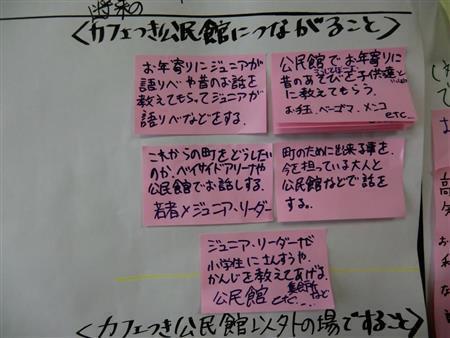 将来の
<カフェつき公民館につながること>
お年寄りにジュニアが
語りべや昔のお話を
教えてもらってジュニアが
語りべなどをする。
公民館でお年寄りに
昔のあそびを子供達と
に教えてもらう。
お手玉、ベーゴマ、メンコ
etc...
これからの町をどうしたい
のか、ベイサイドアリーナや
公民館でお話しする。
若者×ジュニア・リーダー
町のために出来る事を、
今を担っている大人と
公民館などで話を
する。
ジュニア・リーダーが
小学生にさんすうや、
かんじを教えてあげる。
公民館 集会所など
etc...
<カフェつき公民館以外の場ですること>